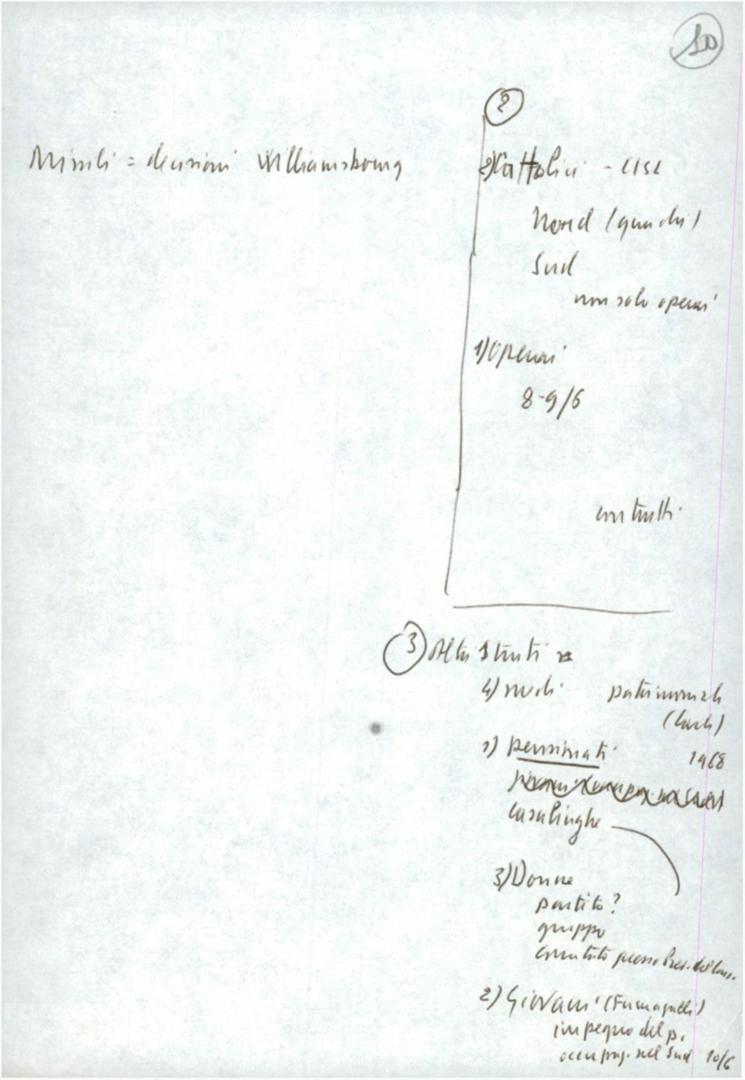 10
Missili = decisioni Williamsbourg
2
2) Cattolici - CISL
Nord (quadri)
Sud
non solo operai
1) Operai
8-9/6
contratti
3 Altri Strati
4) medi patrimoniale
(
1) pensionati 1968
casalinghe
3) Donne
partito?
gruppo
comitato presso Pres. del Cons.
2) Giovani (Fumagalli)
impegno del p.
occupaz. nel Sud 10/6